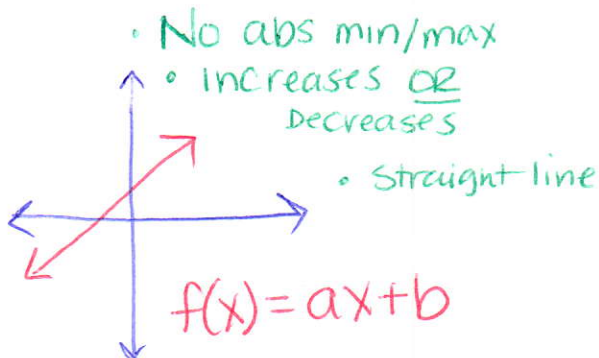 • No abs min/max
• increases OR
Decreases
• straight line
f(x) = ax+b